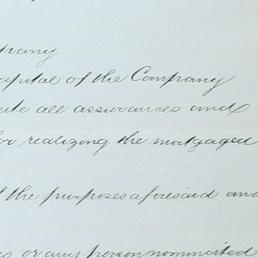 pany
capital of the Company
ute all assurances and
for realizing the mortgaged
the purposes aforesaid and
or any person nominated